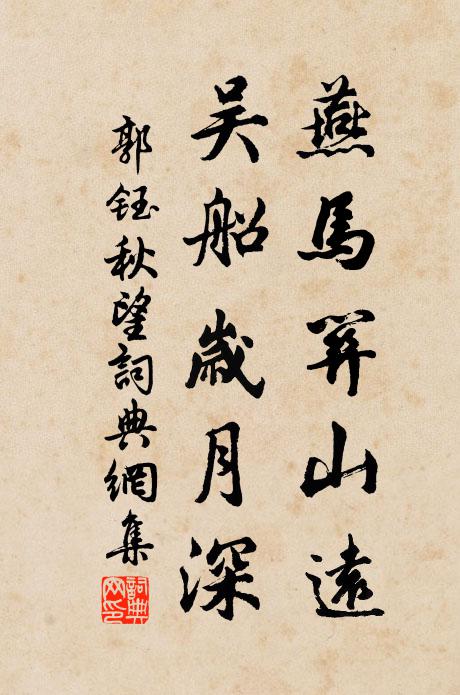 燕馬關山遠
吴船歲月深
郭鈺秋望詞典網集
詞典網印